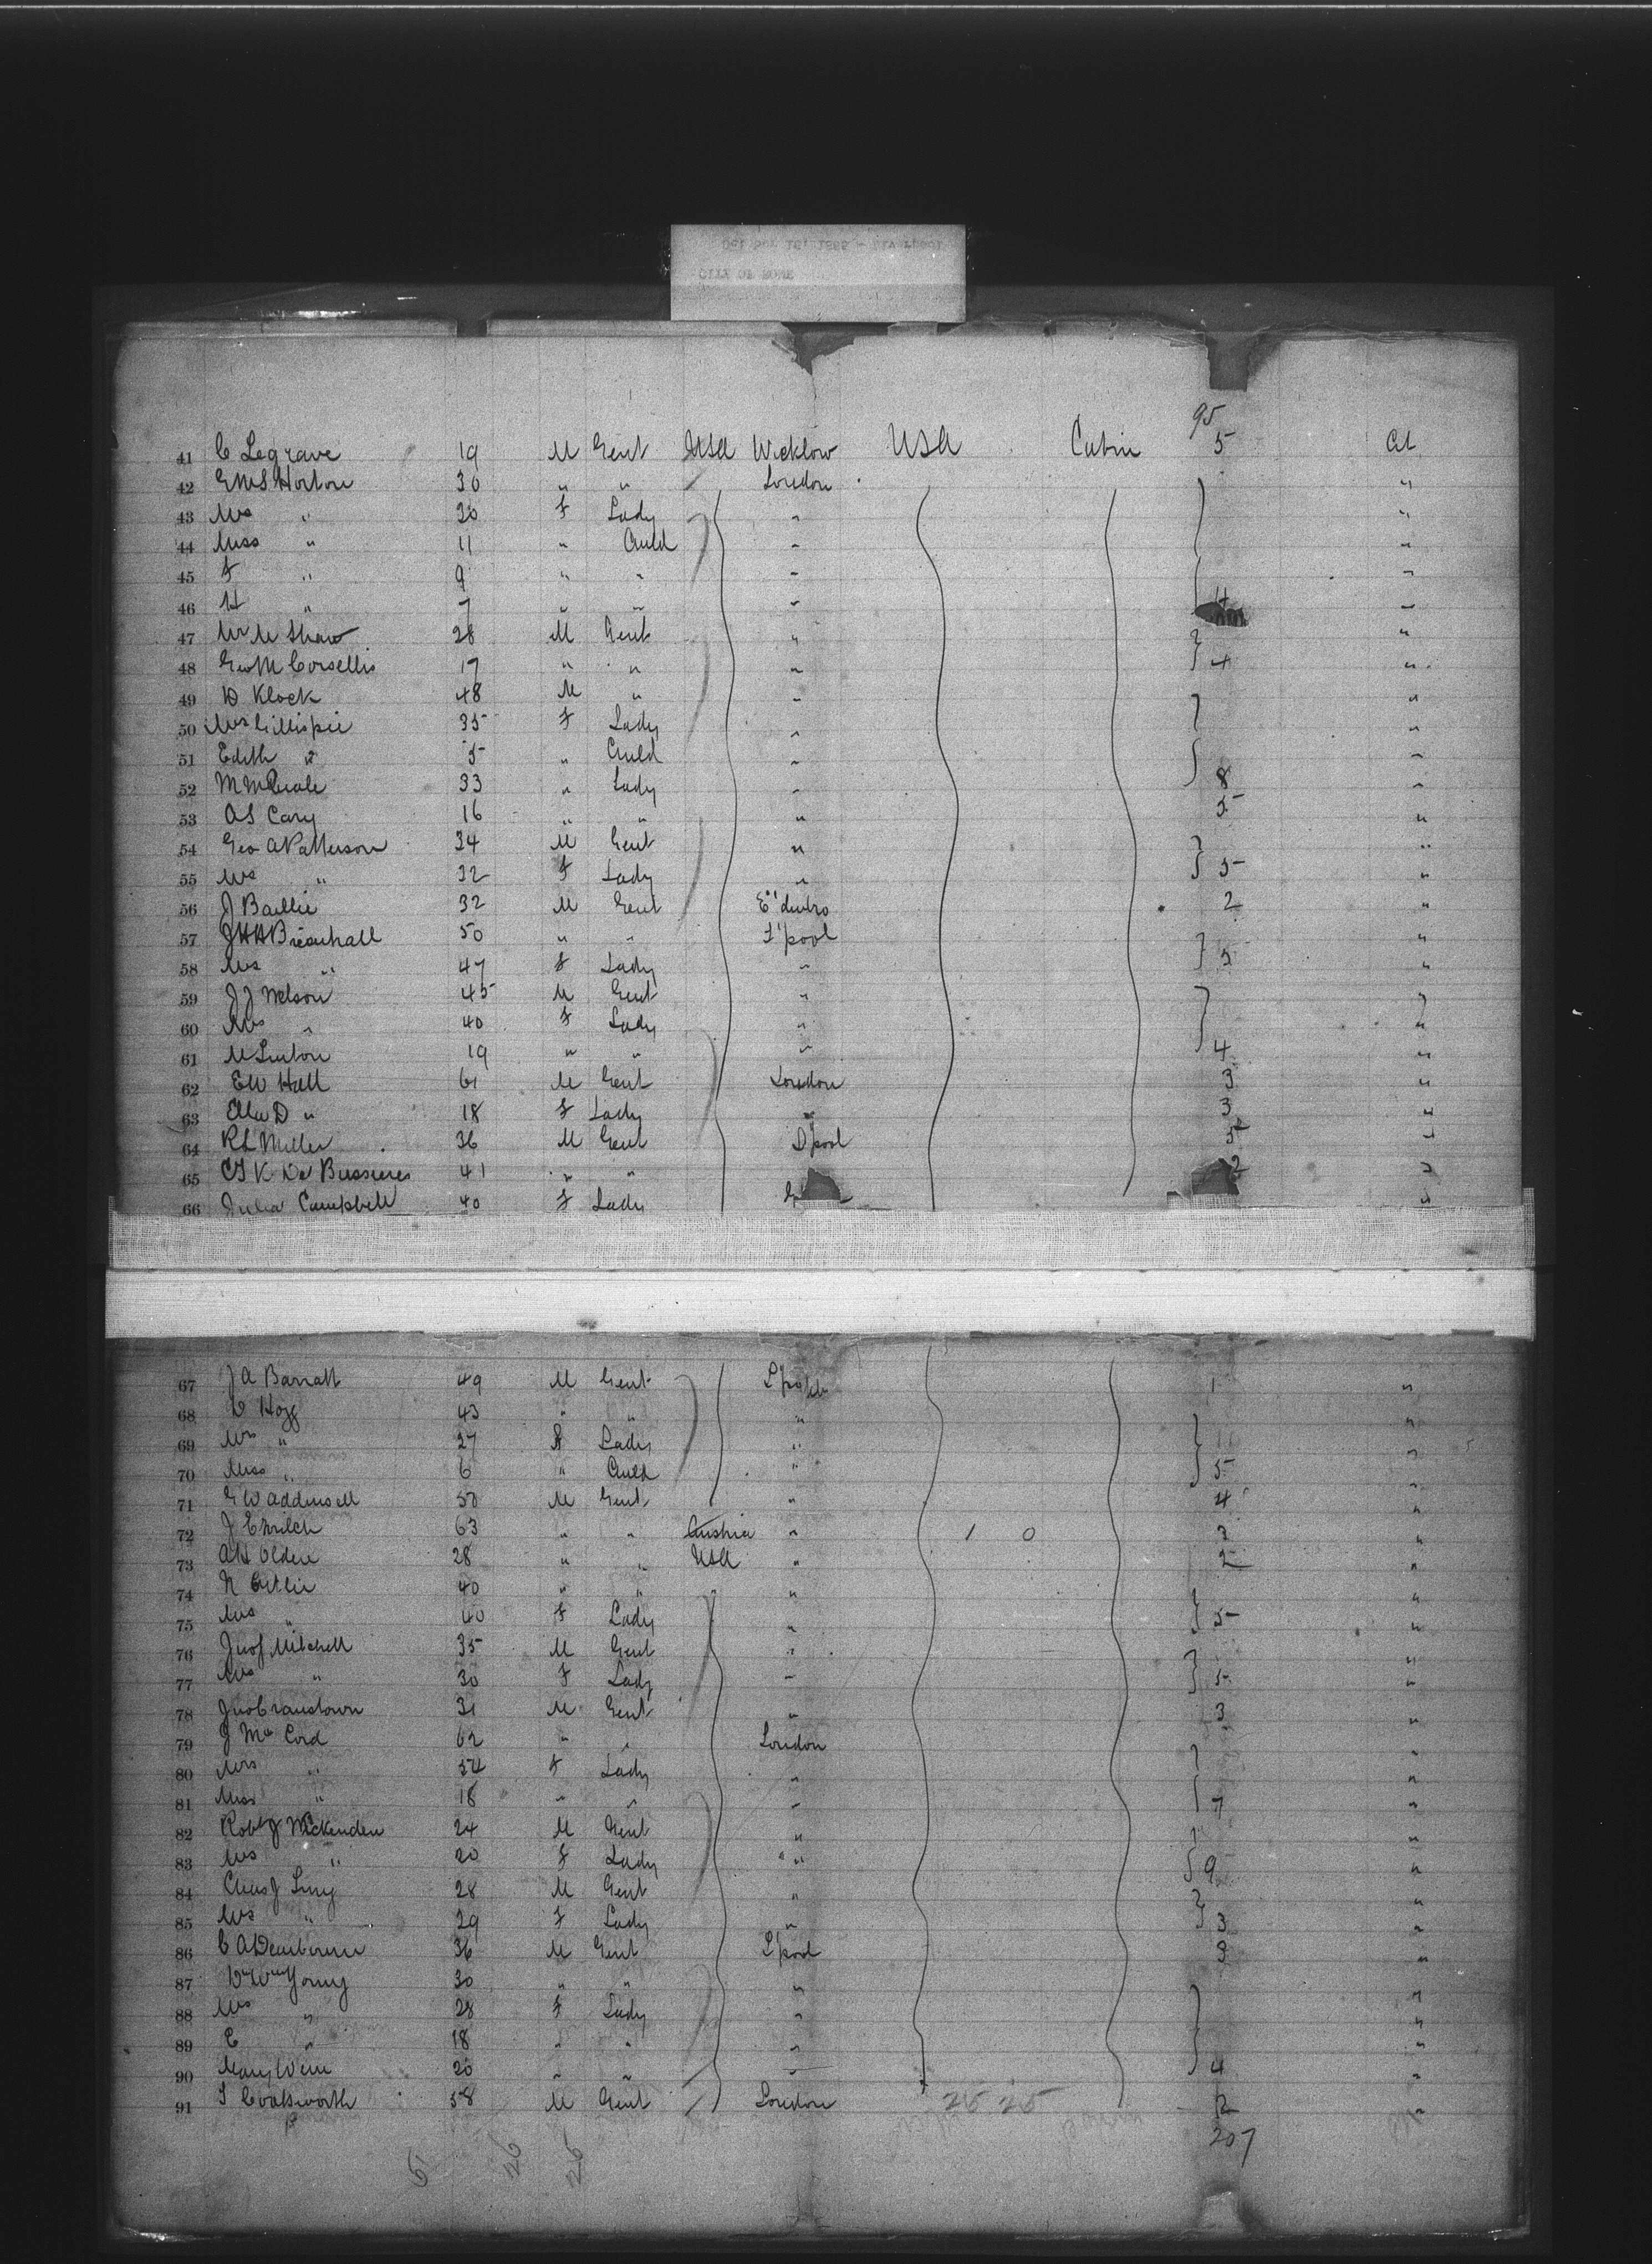 CITY OF ROME
95
41 C Legrave 19 M Gent USA Wicklow USA Cabin 5 at
42 E M S Horton 30 " " London "
43 Mrs " 20 F Lady " "
44 Miss " 11 " Child " "
45 F " 9 " " " "
46 H " 7 " " " 4 "
47 Shaw 28 M Gent " "
48 Geo M Corsellis 17 " " " 4 "
49 D Klock 48 M " " "
50 Mrs Gillispie 35 F Lady " "
51 Edith " 5 " Child " "
52 33 " Lady " 8 "
53 A S Cary 16 " " " 5 "
54 Geo A Patterson 34 M Gent " "
55 Mrs " 32 F Lady " 5 "
56 J Baillie 32 M Gent 2 "
57 50 " " L'pool "
58 Mrs " 47 F Lady " 5 "
59 J J Nelson 45 M Gent " "
60 Mrs " 40 F Lady " "
61 M Linton 19 " " " 4 "
62 E W Hall 61 M Gent London 3 "
63 Ella D " 18 F Lady " 3 "
64 R L Miller 36 M Gent L'pool 5 "
65 De Bussieres 41 " " 2 "
66 Julia Campbell 40 F Lady "
67 J A Barratt 49 M Gent L'pool 1 "
68 Hogg 43 " " " "
69 Mrs " 27 F Lady " "
70 Miss " 6 " Child " 5 "
71 G W Addinsell 50 M Gent " 4 "
72 J 63 " " Austria " 1 0 3 "
73 A H Olden 28 " " USA " 2 "
74 N 40 " " " "
75 Mrs " 40 F Lady " 5 "
76 Jno J Mitchell 35 M Gent " "
77 Mrs " 30 F Lady " 5 "
78 Jno Cranstown 31 M Gent " 3 "
79 J McCord 62 " " London "
80 Mrs " 54 F Lady " "
81 Miss " 18 " " " 7 "
82 Robt J 24 M Gent " "
83 Mrs " 20 F Lady " 9 "
84 Chas J 28 M Gent " "
85 Mrs " 29 F Lady " 3 "
86 C A Dearborn 36 M Gent L'pool 3 "
87 Dr Wm Young 30 " " " "
88 Mrs " 28 F Lady " "
89 C " 18 " " " "
90 Mary Weir 20 " " " 4 "
91 Cooksworth 58 M Gent London 25 25 2 "
207
51 26 26